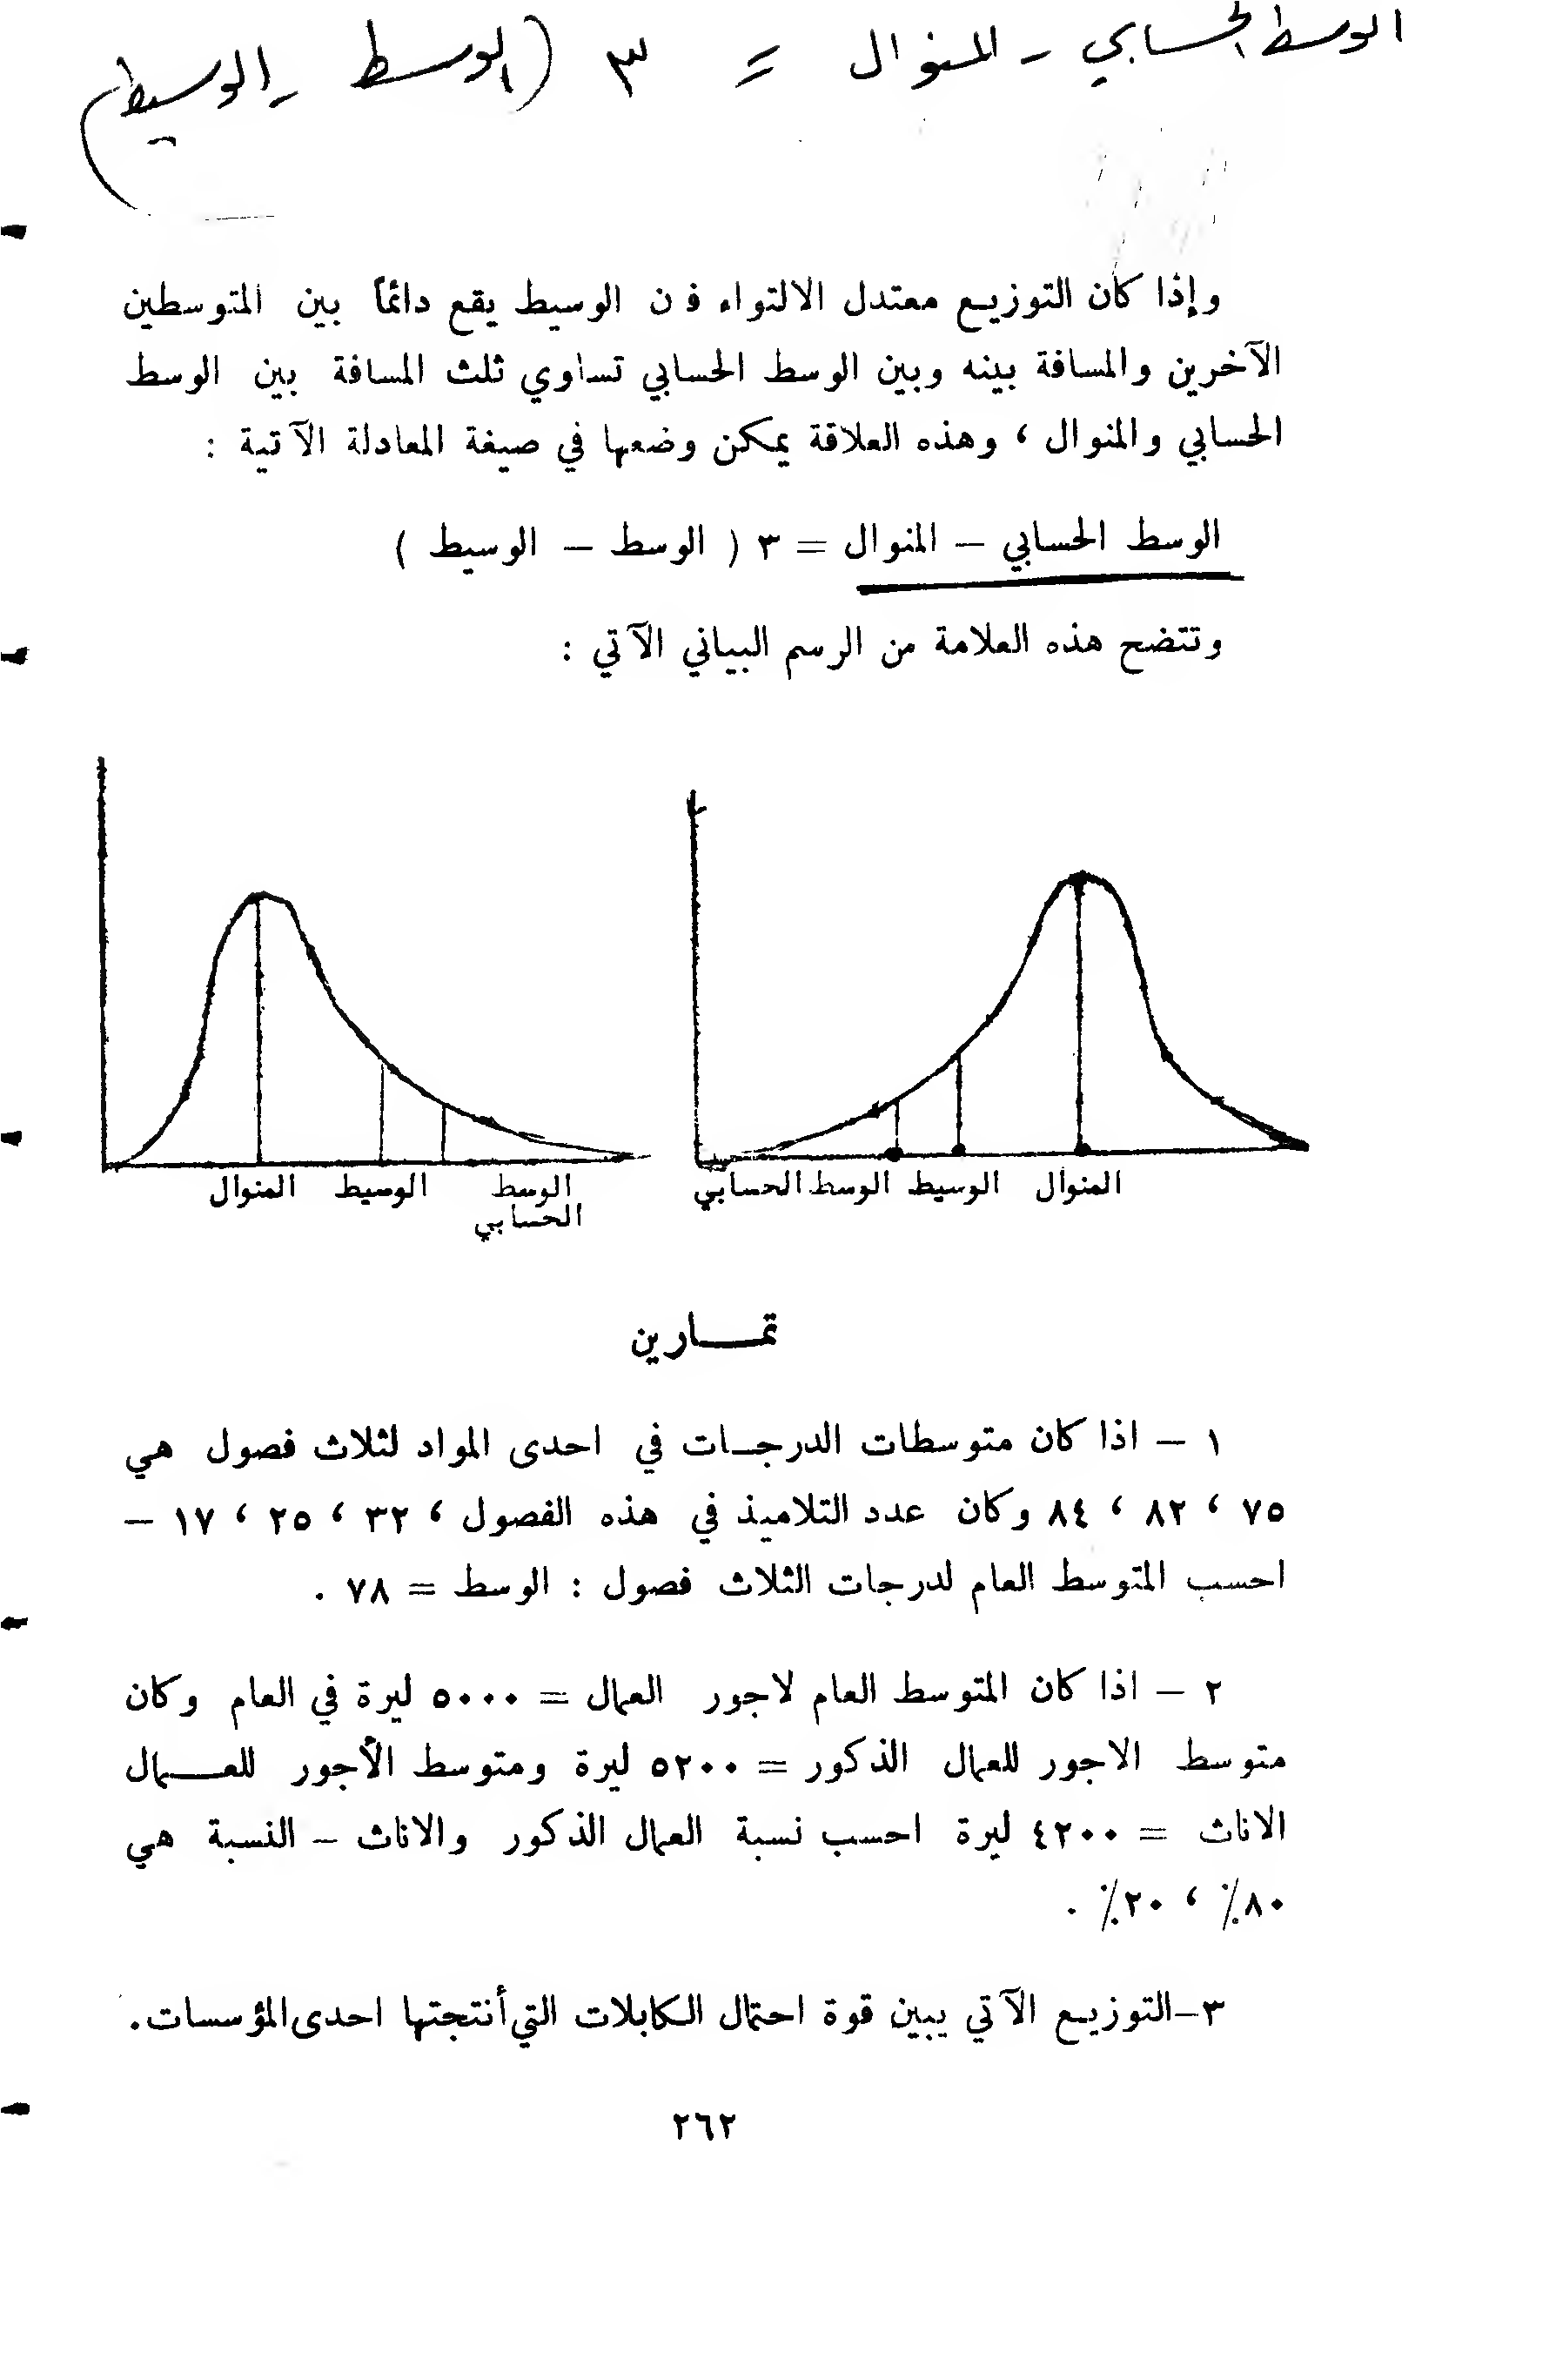 الوسط الحسابي - المنوال = ٣ (الوسط - الوسيط)
وإذا كان التوزيع معتدل الالتواء فن الوسيط يقع دائماً بين المتوسطين
الآخرين والمسافة بينه وبين الوسط الحسابي تساوي ثلث المسافة بين الوسط
الحسابي والمنوال ، وهذه العلاقة يمكن وضعها في صيغة المعادلة الآتية :
الوسط الحسابي – المنوال = ٣ ( الوسط – الوسيط )
وتتضح هذه العلامة من الرسم البياني الآتي :
المنوال الوسيط الوسط الحسابي
المنوال الوسيط الوسط
الحسابي
تمـــارين
١ – اذا كان متوسطات الدرجـات في احدى المواد لثلاث فصول هي
٧٥ ، ٨٢ ، ٨٤ وكان عدد التلاميذ في هذه الفصول ، ٣٢ ، ٢٥ ، ١٧ –
احسب المتوسط العام لدرجات الثلاث فصول : الوسط = ٧٨ .
٢ – اذا كان المتوسط العام لاجور العمال = ٥٠٠٠ ليرة في العام وكان
متوسط الاجور للعمال الذكور = ٥٢٠٠ ليرة ومتوسط الأجور للعـــمال
الاناث = ٤٢٠٠ ليرة احسب نسبة العمال الذكور والاناث – النسبة هي
٨٠٪ ، ٢٠٪ .
٣–التوزيع الآتي يبين قوة احتمال الكابلات التي أنتجتها احدى المؤسسات.
٢٦٢